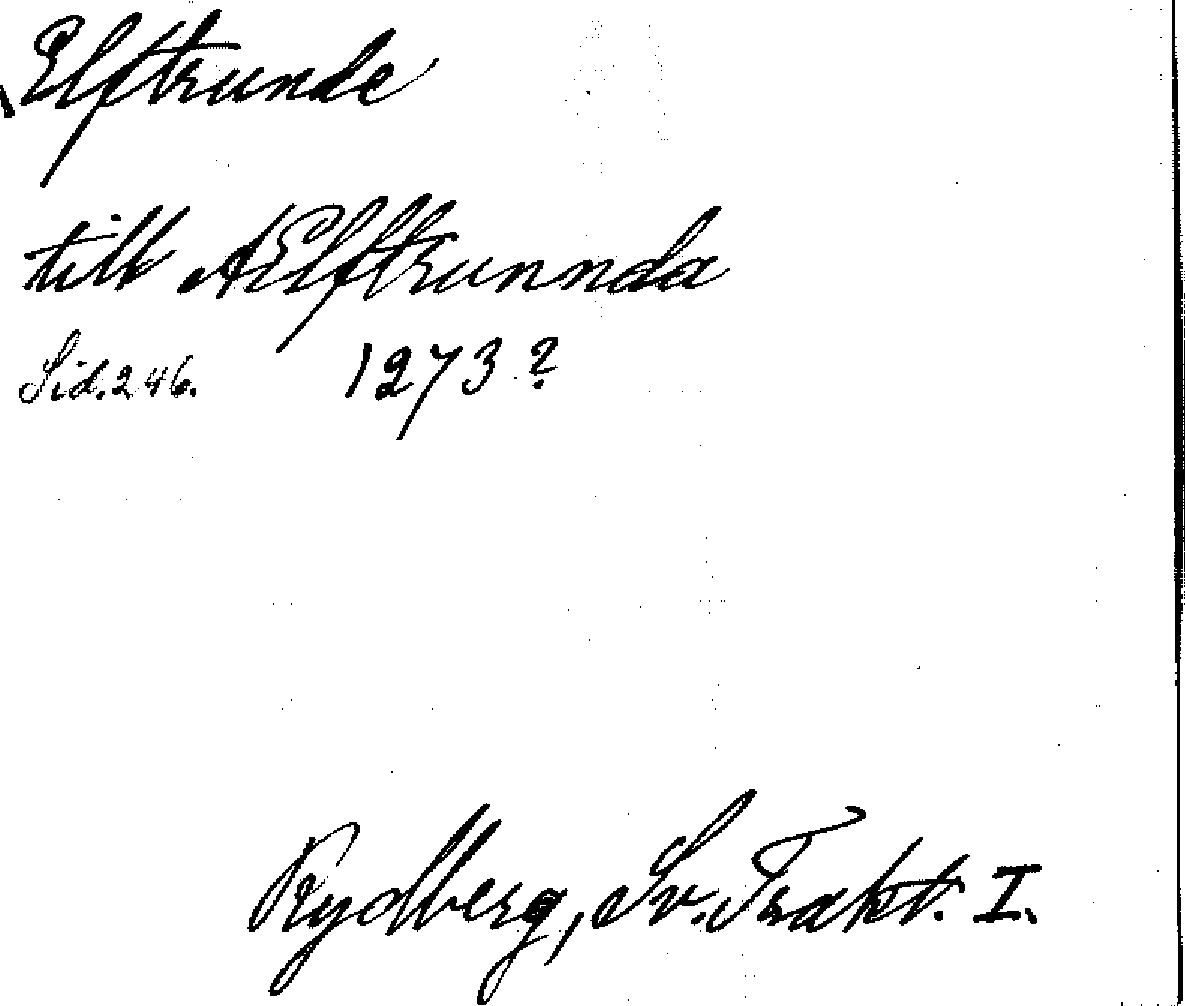 Elftrunde
till AElftrunnda
Sid. 246. 1273?
Rydberg, Sv. Trakt. I.